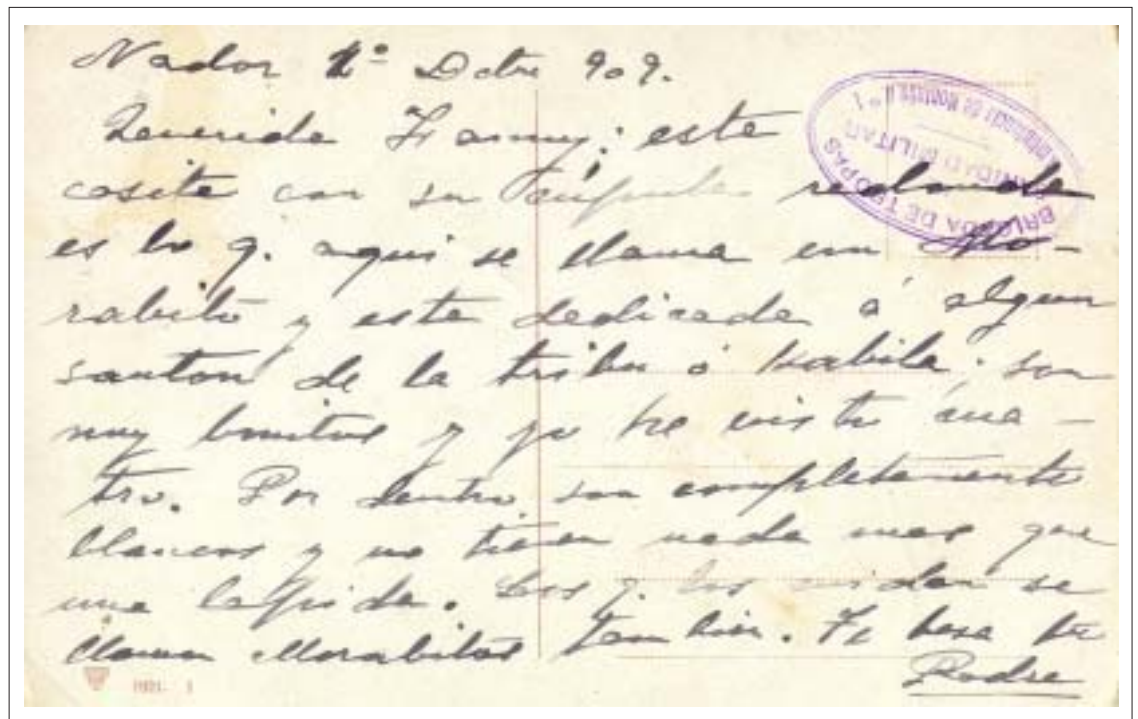 Nador 1º Octre 909.
Querida Fanny: este
casita con su cúpula redonda
es lo q. aqui se llama un Mo-
rabito y esta dedicada á algun
santon de la tribu ó Kabila; son
muy bonitos y yo he visto cua-
tro. Por dentro son completamente
blancos y no tienen nada mas que
una lapida. Los q. los cuidan se
llaman Morabitos tambien. Te besa tu
Padre
BRIGADA DE TROPAS
SANIDAD MILITAR
Ambulancia de Montaña N.º 1